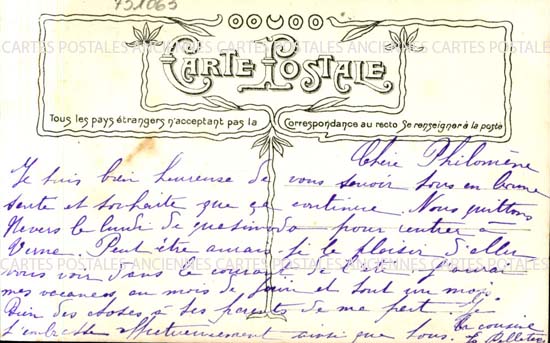 731063
CARTES POSTALES ANCIENNES CARTES POSTALES ANCIENNES CARTES POSTALES
CARTE POSTALE
Tous les pays étrangers n'acceptant pas la Correspondance au recto Se renseigner à la poste
Chère Philomène
Je suis bien heureuse de vous savoir tous en bonne
sante et souhaite que ça continue. Nous quittons
Nevers le lundi de quasimodo pour rentrer à
Peut être aurai je le plaisir d'aller
vous voir dans le courant de l'été j'aurai
mes vacances au mois de juin et tout un mois
Bien des choses à tes parents de ma part. Je
t'embrasse affectueusement ainsi que tous. Ta cousine